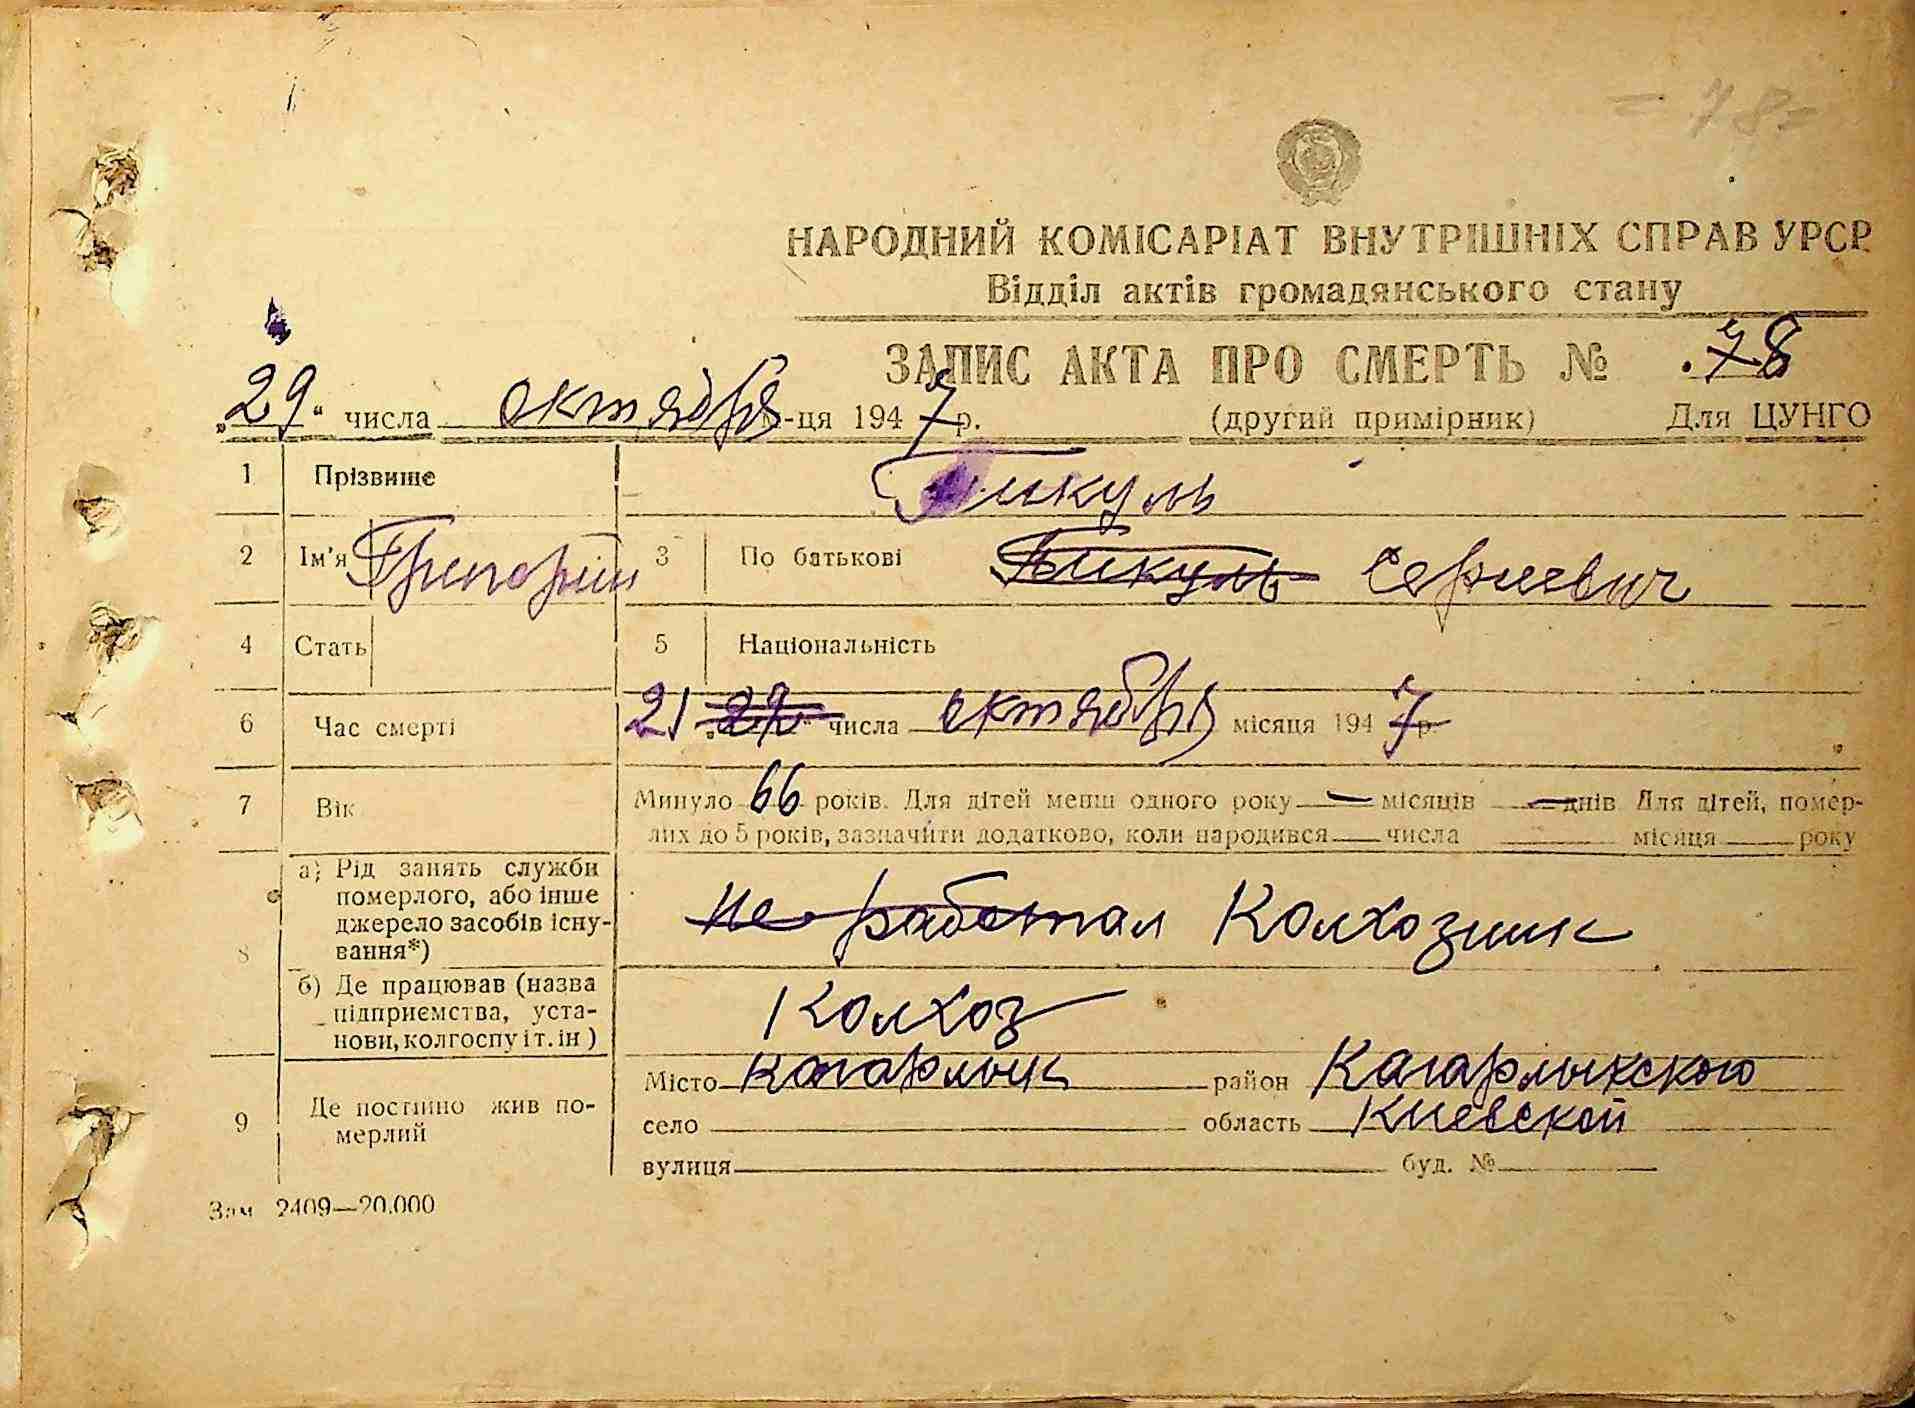 = 78 =
НАРОДНИЙ КОМІСАРІАТ ВНУТРІШНІХ СПРАВ УРСР
Відділ актів громадянського стану
ЗАПИС АКТА ПРО СМЕРТЬ № 78
„29" числа октября м-ця 1947 р. (другий примірник) Для ЦУНГО
1 Прізвище Пикуль
2 Ім'я Григорий 3 По батькові Пикуль Сергеевич
4 Стать 5 Національність
6 Час смерті 21 „29" числа октября місяця 1947 р.
7 Вік Минуло 66 років. Для дітей менш одного року — місяців — днів Для дітей, помер-
лих до 5 років, зазначити додатково, коли народився числа місяця року
8 а) Рід занять служби
померлого, або інше
джерело засобів існу-
вання*)
не работал Колхозник
б) Де працював (назва
підприємства, уста-
нови, колгоспу і т. ін)
Колхоз
9 Де постійно жив по-
мерлий
Місто Кагарлык район Кагарлыкского
село область Киевской
вулиця буд. №
Зам 2409—20.000